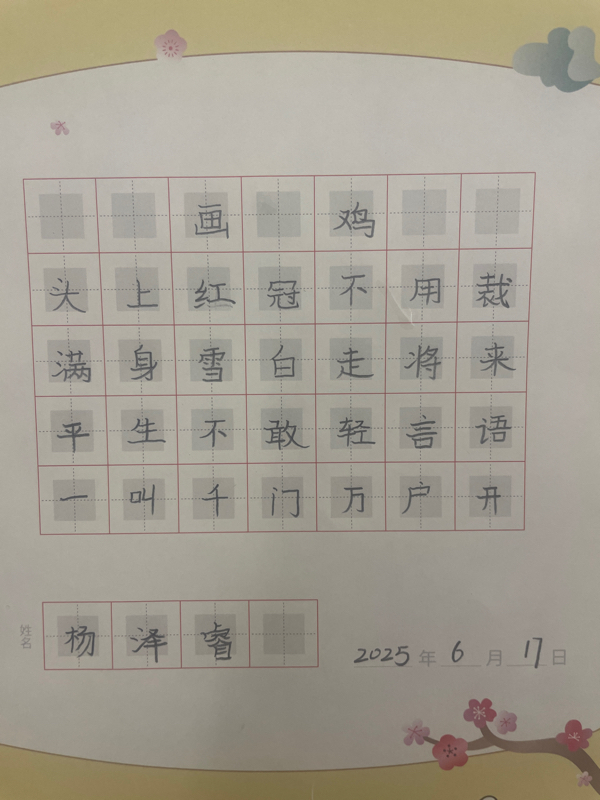 画鸡
头上红冠不用裁
满身雪白走将来
平生不敢轻言语
一叫千门万户开
姓名 杨泽睿
2025年6月17日